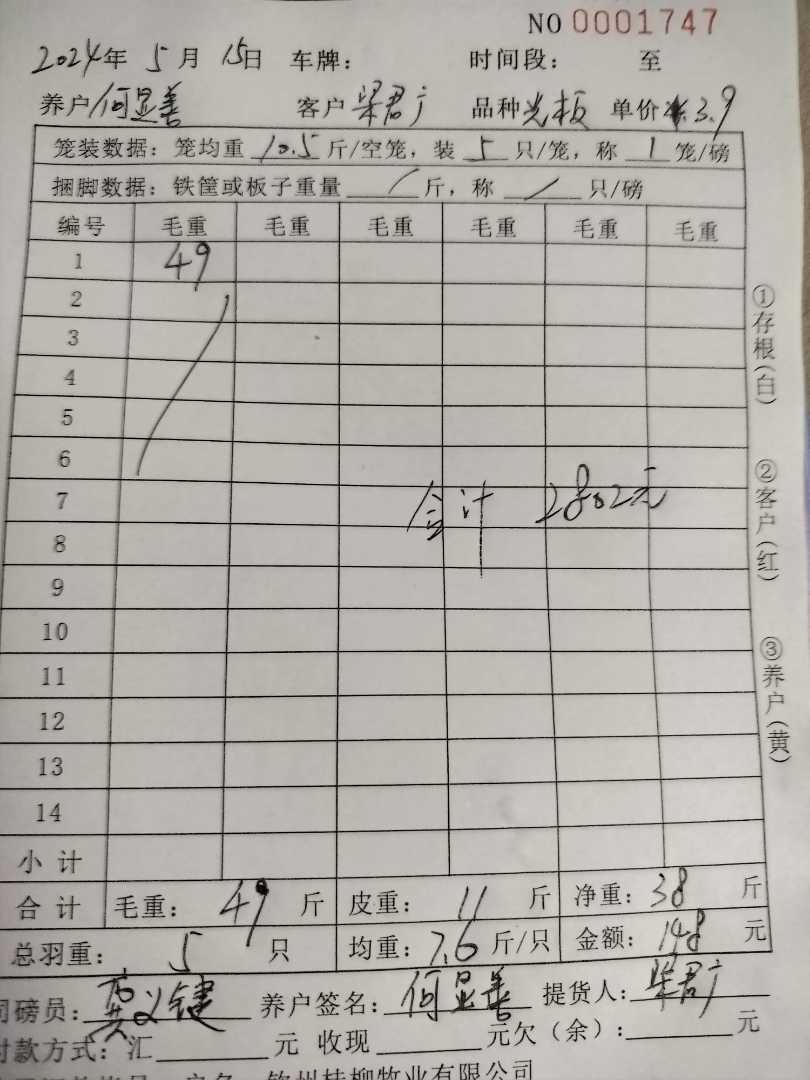 NO 0001747
2024年 5月 15日 车牌: 时间段: 至
养户 何显善 客户 梁君广 品种 光板 单价 3.9
笼装数据: 笼均重 10.5 斤/空笼, 装 5 只/笼, 称 1 笼/磅
捆脚数据: 铁筐或板子重量 / 斤, 称 / 只/磅
编号 毛重 毛重 毛重 毛重 毛重 毛重
1 49
2
3
4
5
6
7 合计 2802元
8
9
10
11
12
13
14
小计
合计 毛重: 49 斤 皮重: 11 斤 净重: 38 斤
总羽重: 5 只 均重: 7.6 斤/只 金额: 148 元
司磅员: 义键 养户签名: 何显善 提货人: 梁君广
付款方式: 汇 元 收现 元欠(余): 元
户名 钦州桂柳牧业有限公司
①存根(白)
②客户(红)
③养户(黄)